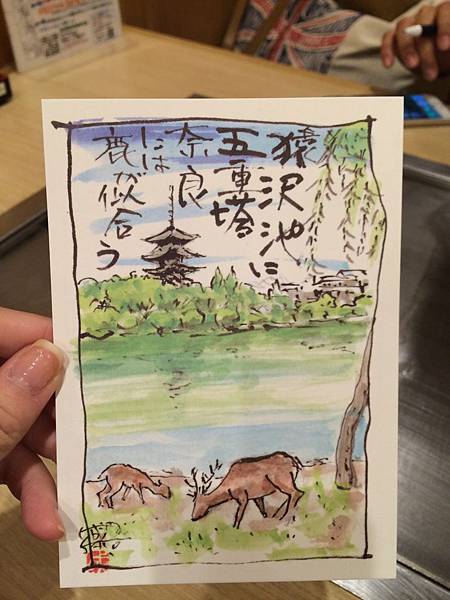 猿沢池に
五重塔
奈良
には
鹿が似合う